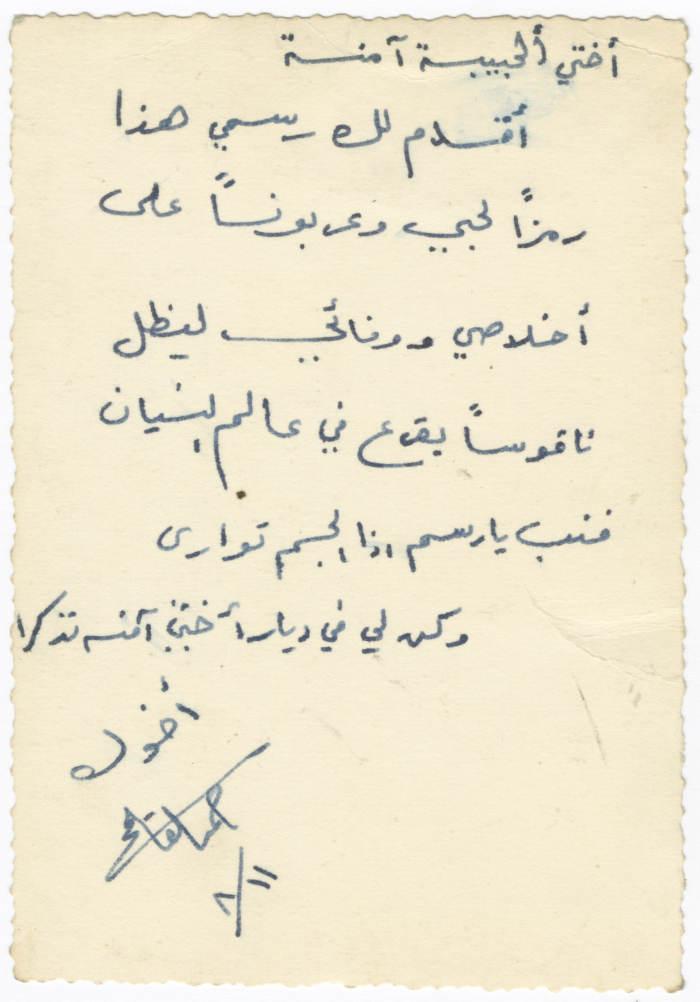 أختي ألحبيبة آمنة
أقدم لك رسمي هذا
رمزاً لحبي وعربوناً على
أخلاصي ووفائي ليظل
ناقوساً يقرع في عالم النسيان
فنب يا رسم اذا الجسم توارى
وكن لي في ديار أختي آمنه تذكرا
أخوك